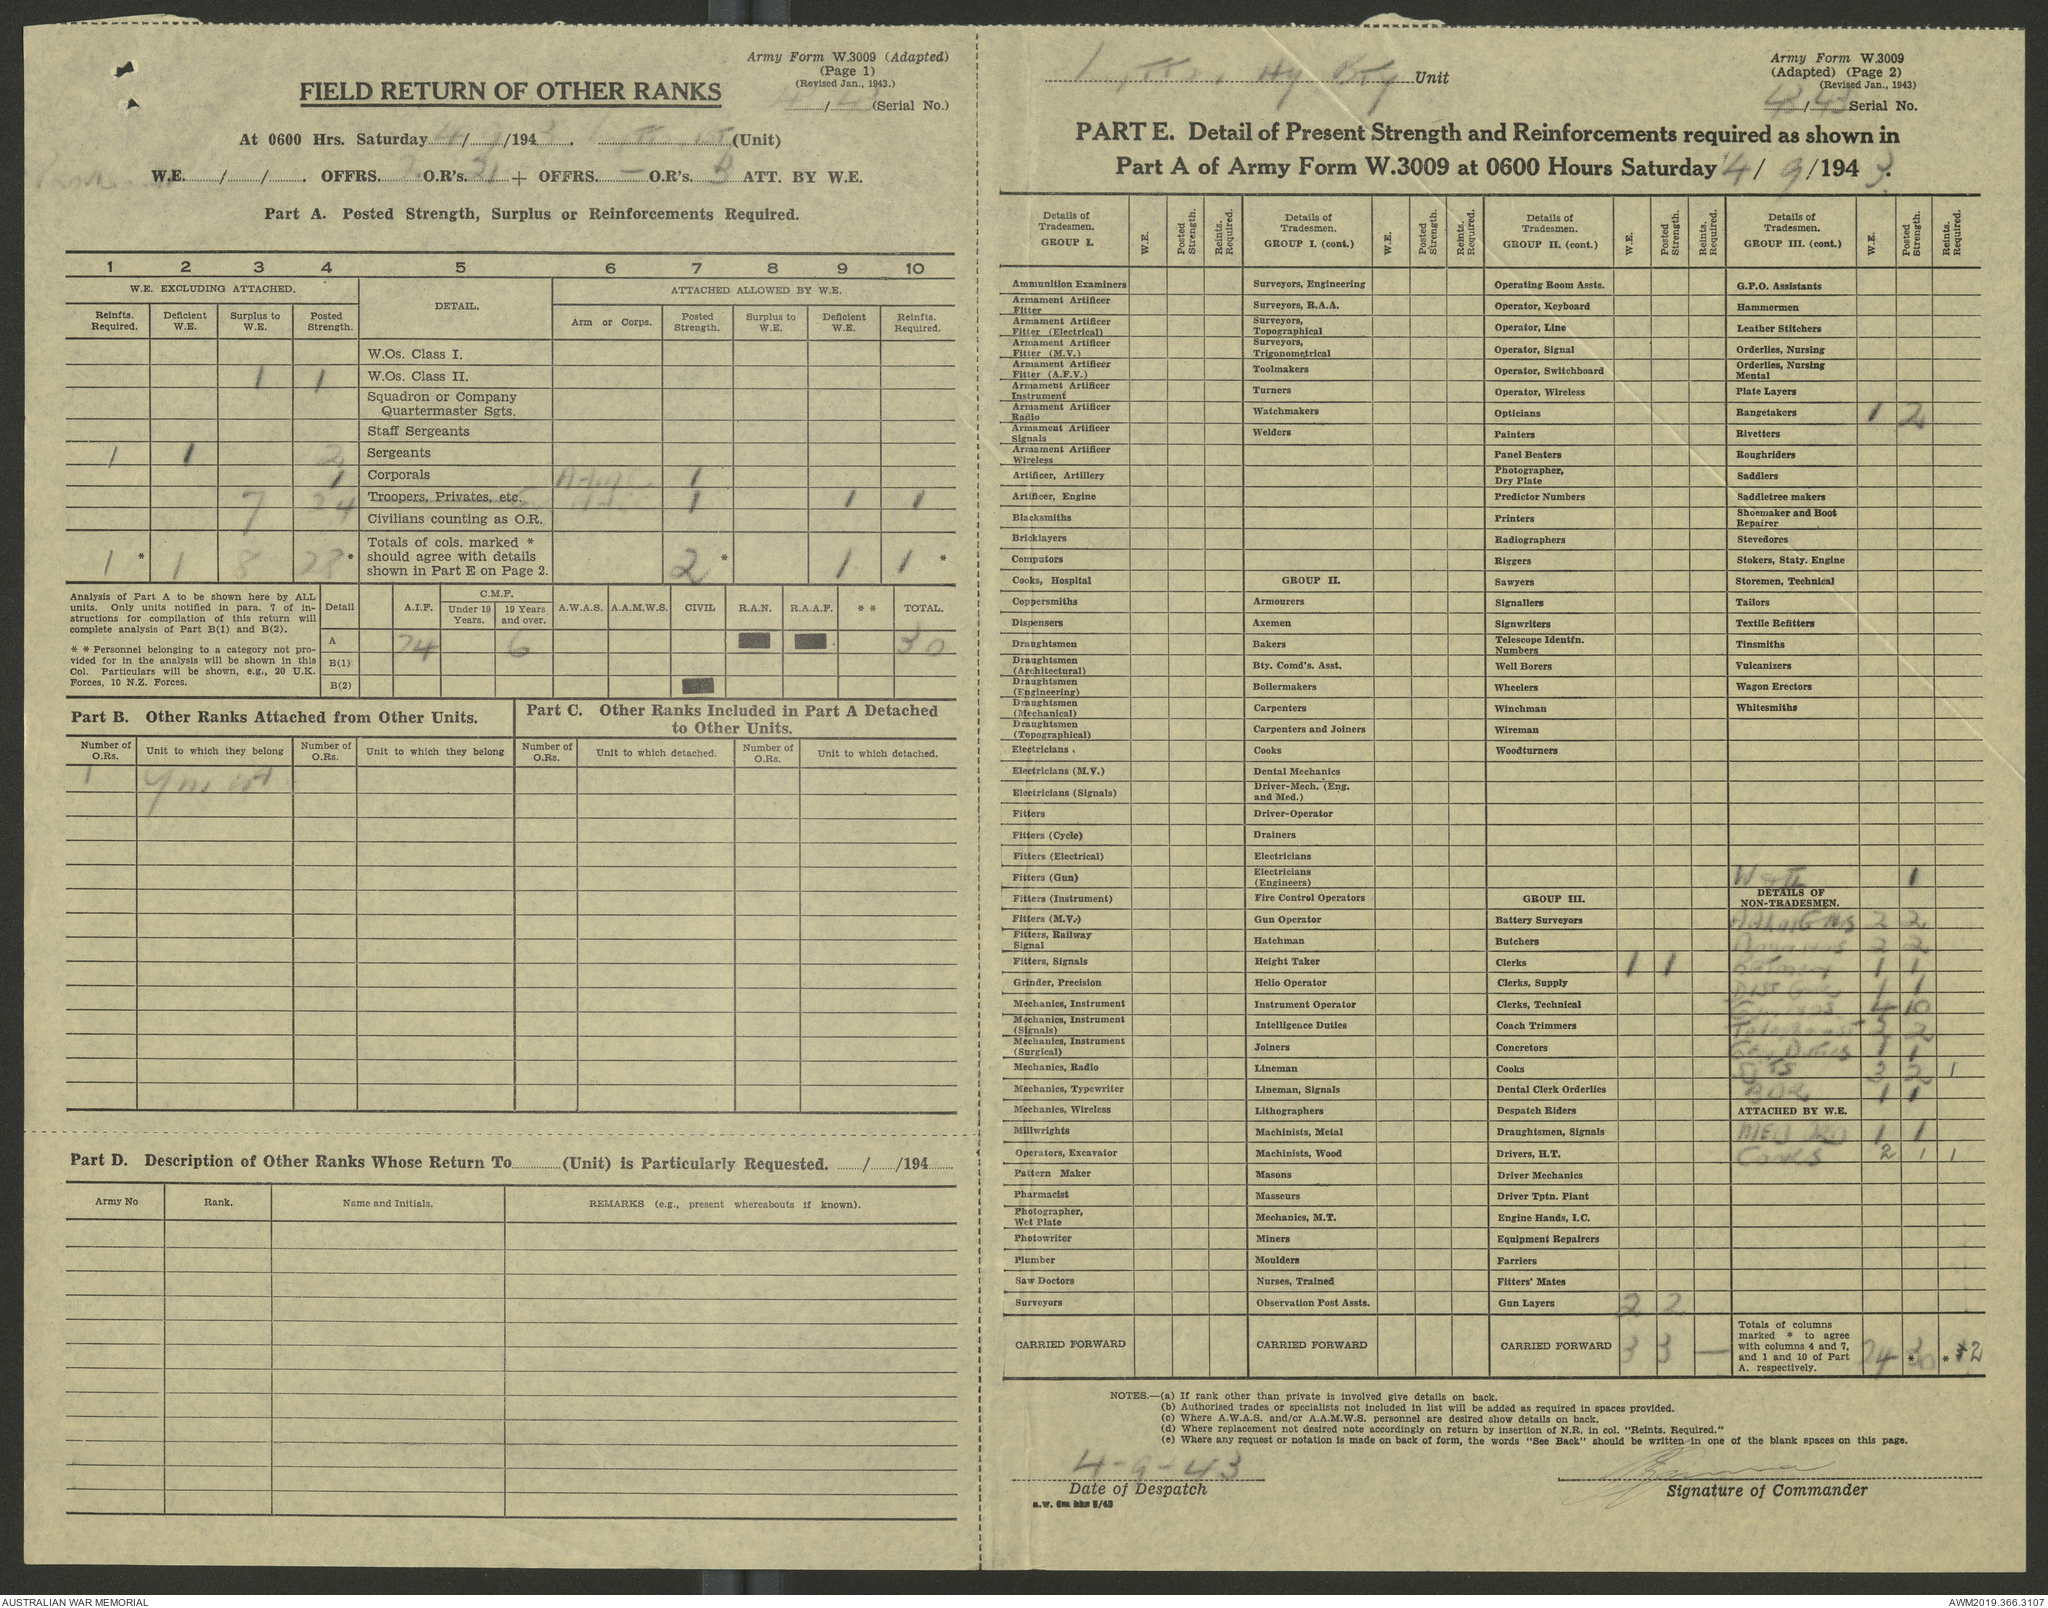 Army Form W.3009 (Adapted)
(Page 1)
(Revised Jan., 1943.)
FIELD RETURN OF OTHER RANKS
(Serial No.)
At 0600 Hrs. Saturday 4/9/1943. (Unit)
W.E. / / . OFFRS. 2 O.R's. 21 + OFFRS. — O.R's. 3 ATT. BY W.E.
Part A. Posted Strength, Surplus or Reinforcements Required.
1 2 3 4 5 6 7 8 9 10
W.E. EXCLUDING ATTACHED. DETAIL. ATTACHED ALLOWED BY W.E.
Reinfts. Required. Deficient W.E. Surplus to W.E. Posted Strength. Arm or Corps. Posted Strength. Surplus to W.E. Deficient W.E. Reinfts. Required.
W.Os. Class I.
1 1 W.Os. Class II.
Squadron or Company
Quartermaster Sgts.
Staff Sergeants
1 1 2 Sergeants
1 Corporals 1
7 24 Troopers, Privates, etc. 1 1 1
Civilians counting as O.R.
Totals of cols. marked *
should agree with details
shown in Part E on Page 2.
1 * 1 8 28 * 2 * 1 1 *
Analysis of Part A to be shown here by ALL
units. Only units notified in para. 7 of in-
structions for compilation of this return will
complete analysis of Part B(1) and B(2).
* * Personnel belonging to a category not pro-
vided for in the analysis will be shown in this
Col. Particulars will be shown, e.g., 20 U.K.
Forces, 10 N.Z. Forces.
Detail A.I.F. C.M.F. Under 19 Years. 19 Years and over. A.W.A.S. A.A.M.W.S. CIVIL R.A.N. R.A.A.F. * * TOTAL.
A 24 6 30
B(1)
B(2)
Part B. Other Ranks Attached from Other Units.
Part C. Other Ranks Included in Part A Detached
to Other Units.
Number of O.Rs. Unit to which they belong Number of O.Rs. Unit to which they belong Number of O.Rs. Unit to which detached. Number of O.Rs. Unit to which detached.
1
Part D. Description of Other Ranks Whose Return To (Unit) is Particularly Requested. / /194
Army No Rank. Name and Initials. REMARKS (e.g., present whereabouts if known).
Hy Bty Unit
Army Form W.3009
(Adapted) (Page 2)
(Revised Jan., 1943)
43/43 Serial No.
PART E. Detail of Present Strength and Reinforcements required as shown in
Part A of Army Form W.3009 at 0600 Hours Saturday 4/9/1943.
Details of Tradesmen. GROUP I. W.E. Posted Strength. Reints. Required.
Ammunition Examiners
Armament Artificer Fitter
Armament Artificer Fitter (Electrical)
Armament Artificer Fitter (M.V.)
Armament Artificer Fitter (A.F.V.)
Armament Artificer Instrument
Armament Artificer Radio
Armament Artificer Signals
Armament Artificer Wireless
Artificer, Artillery
Artificer, Engine
Blacksmiths
Bricklayers
Computors
Cooks, Hospital
Coppersmiths
Dispensers
Draughtsmen
Draughtsmen (Architectural)
Draughtsmen (Engineering)
Draughtsmen (Mechanical)
Draughtsmen (Topographical)
Electricians .
Electricians (M.V.)
Electricians (Signals)
Fitters
Fitters (Cycle)
Fitters (Electrical)
Fitters (Gun)
Fitters (Instrument)
Fitters (M.V.)
Fitters, Railway Signal
Fitters, Signals
Grinder, Precision
Mechanics, Instrument
Mechanics, Instrument (Signals)
Mechanics, Instrument (Surgical)
Mechanics, Radio
Mechanics, Typewriter
Mechanics, Wireless
Millwrights
Operators, Excavator
Pattern Maker
Pharmacist
Photographer, Wet Plate
Photowriter
Plumber
Saw Doctors
Surveyors
CARRIED FORWARD
Details of Tradesmen. GROUP I. (cont.) W.E. Posted Strength. Reints. Required.
Surveyors, Engineering
Surveyors, R.A.A.
Surveyors, Topographical
Surveyors, Trigonometrical
Toolmakers
Turners
Watchmakers
Welders
GROUP II.
Armourers
Axemen
Bakers
Bty. Comd's. Asst.
Boilermakers
Carpenters
Carpenters and Joiners
Cooks
Dental Mechanics
Driver-Mech. (Eng. and Med.)
Driver-Operator
Drainers
Electricians
Electricians (Engineers)
Fire Control Operators
Gun Operator
Hatchman
Height Taker
Helio Operator
Instrument Operator
Intelligence Duties
Joiners
Lineman
Lineman, Signals
Lithographers
Machinists, Metal
Machinists, Wood
Masons
Masseurs
Mechanics, M.T.
Miners
Moulders
Nurses, Trained
Observation Post Assts.
CARRIED FORWARD
Details of Tradesmen. GROUP II. (cont.) W.E. Posted Strength. Reints. Required.
Operating Room Assts.
Operator, Keyboard
Operator, Line
Operator, Signal
Operator, Switchboard
Operator, Wireless
Opticians
Painters
Panel Beaters
Photographer, Dry Plate
Predictor Numbers
Printers
Radiographers
Riggers
Sawyers
Signallers
Signwriters
Telescope Identfn. Numbers
Well Borers
Wheelers
Winchman
Wireman
Woodturners
GROUP III.
Battery Surveyors
Butchers
Clerks 1 1
Clerks, Supply
Clerks, Technical
Coach Trimmers
Concretors
Cooks
Dental Clerk Orderlies
Despatch Riders
Draughtsmen, Signals
Drivers, H.T.
Driver Mechanics
Driver Tptn. Plant
Engine Hands, I.C.
Equipment Repairers
Farriers
Fitters' Mates
Gun Layers 2 2
CARRIED FORWARD 3 3 —
Details of Tradesmen. GROUP III. (cont.) W.E. Posted Strength. Reints. Required.
G.P.O. Assistants
Hammermen
Leather Stitchers
Orderlies, Nursing
Orderlies, Nursing Mental
Plate Layers
Rangetakers 1 2
Rivetters
Roughriders
Saddlers
Saddletree makers
Shoemaker and Boot Repairer
Stevedores
Stokers, Staty. Engine
Storemen, Technical
Tailors
Textile Refitters
Tinsmiths
Vulcanizers
Wagon Erectors
Whitesmiths
1
DETAILS OF NON-TRADESMEN.
2 2
2 2
Batmen 1 1
1 1
4 10
Telephonist 2 2
Gen Duties 1 1
Sgts 3 2 1
BDR 1 1
ATTACHED BY W.E.
MED ORD 1 1
Cooks 2 1 1
Totals of columns
marked * to agree
with columns 4 and 7,
and 1 and 10 of Part
A. respectively.
24 30 * * 2
NOTES.—(a) If rank other than private is involved give details on back.
(b) Authorised trades or specialists not included in list will be added as required in spaces provided.
(c) Where A.W.A.S. and/or A.A.M.W.S. personnel are desired show details on back.
(d) Where replacement not desired note accordingly on return by insertion of N.R. in col. "Reints. Required."
(e) Where any request or notation is made on back of form, the words "See Back" should be written in one of the blank spaces on this page.
4-9-43
Date of Despatch
Signature of Commander
a.w. 6m bks 5/43
AUSTRALIAN WAR MEMORIAL
AWM2019.366.3107